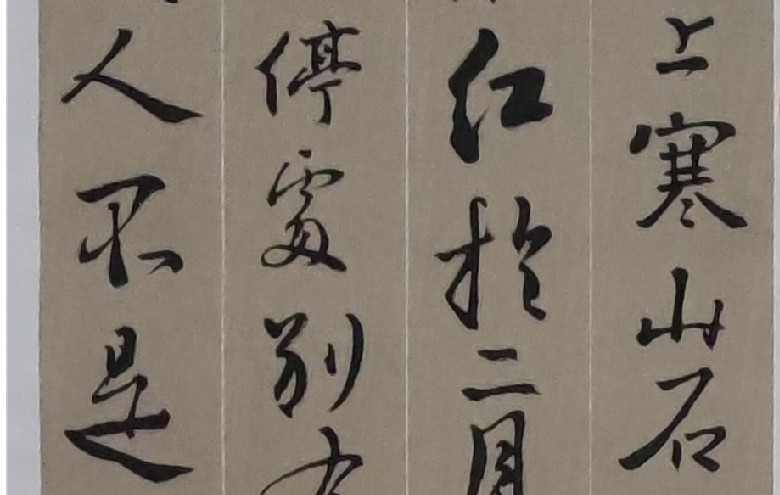 上寒山石
红於二月
停處别
人不是